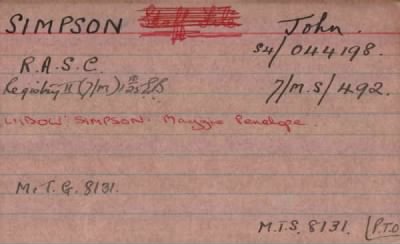 SIMPSON John.
S4/044198.
R.A.S.C.
Registry II (7/M) 7/M.S/492.
WIDOW: SIMPSON. Maggie Penelope.
M.T.G. 8131.
M.T.S. 8131. (P.T.O